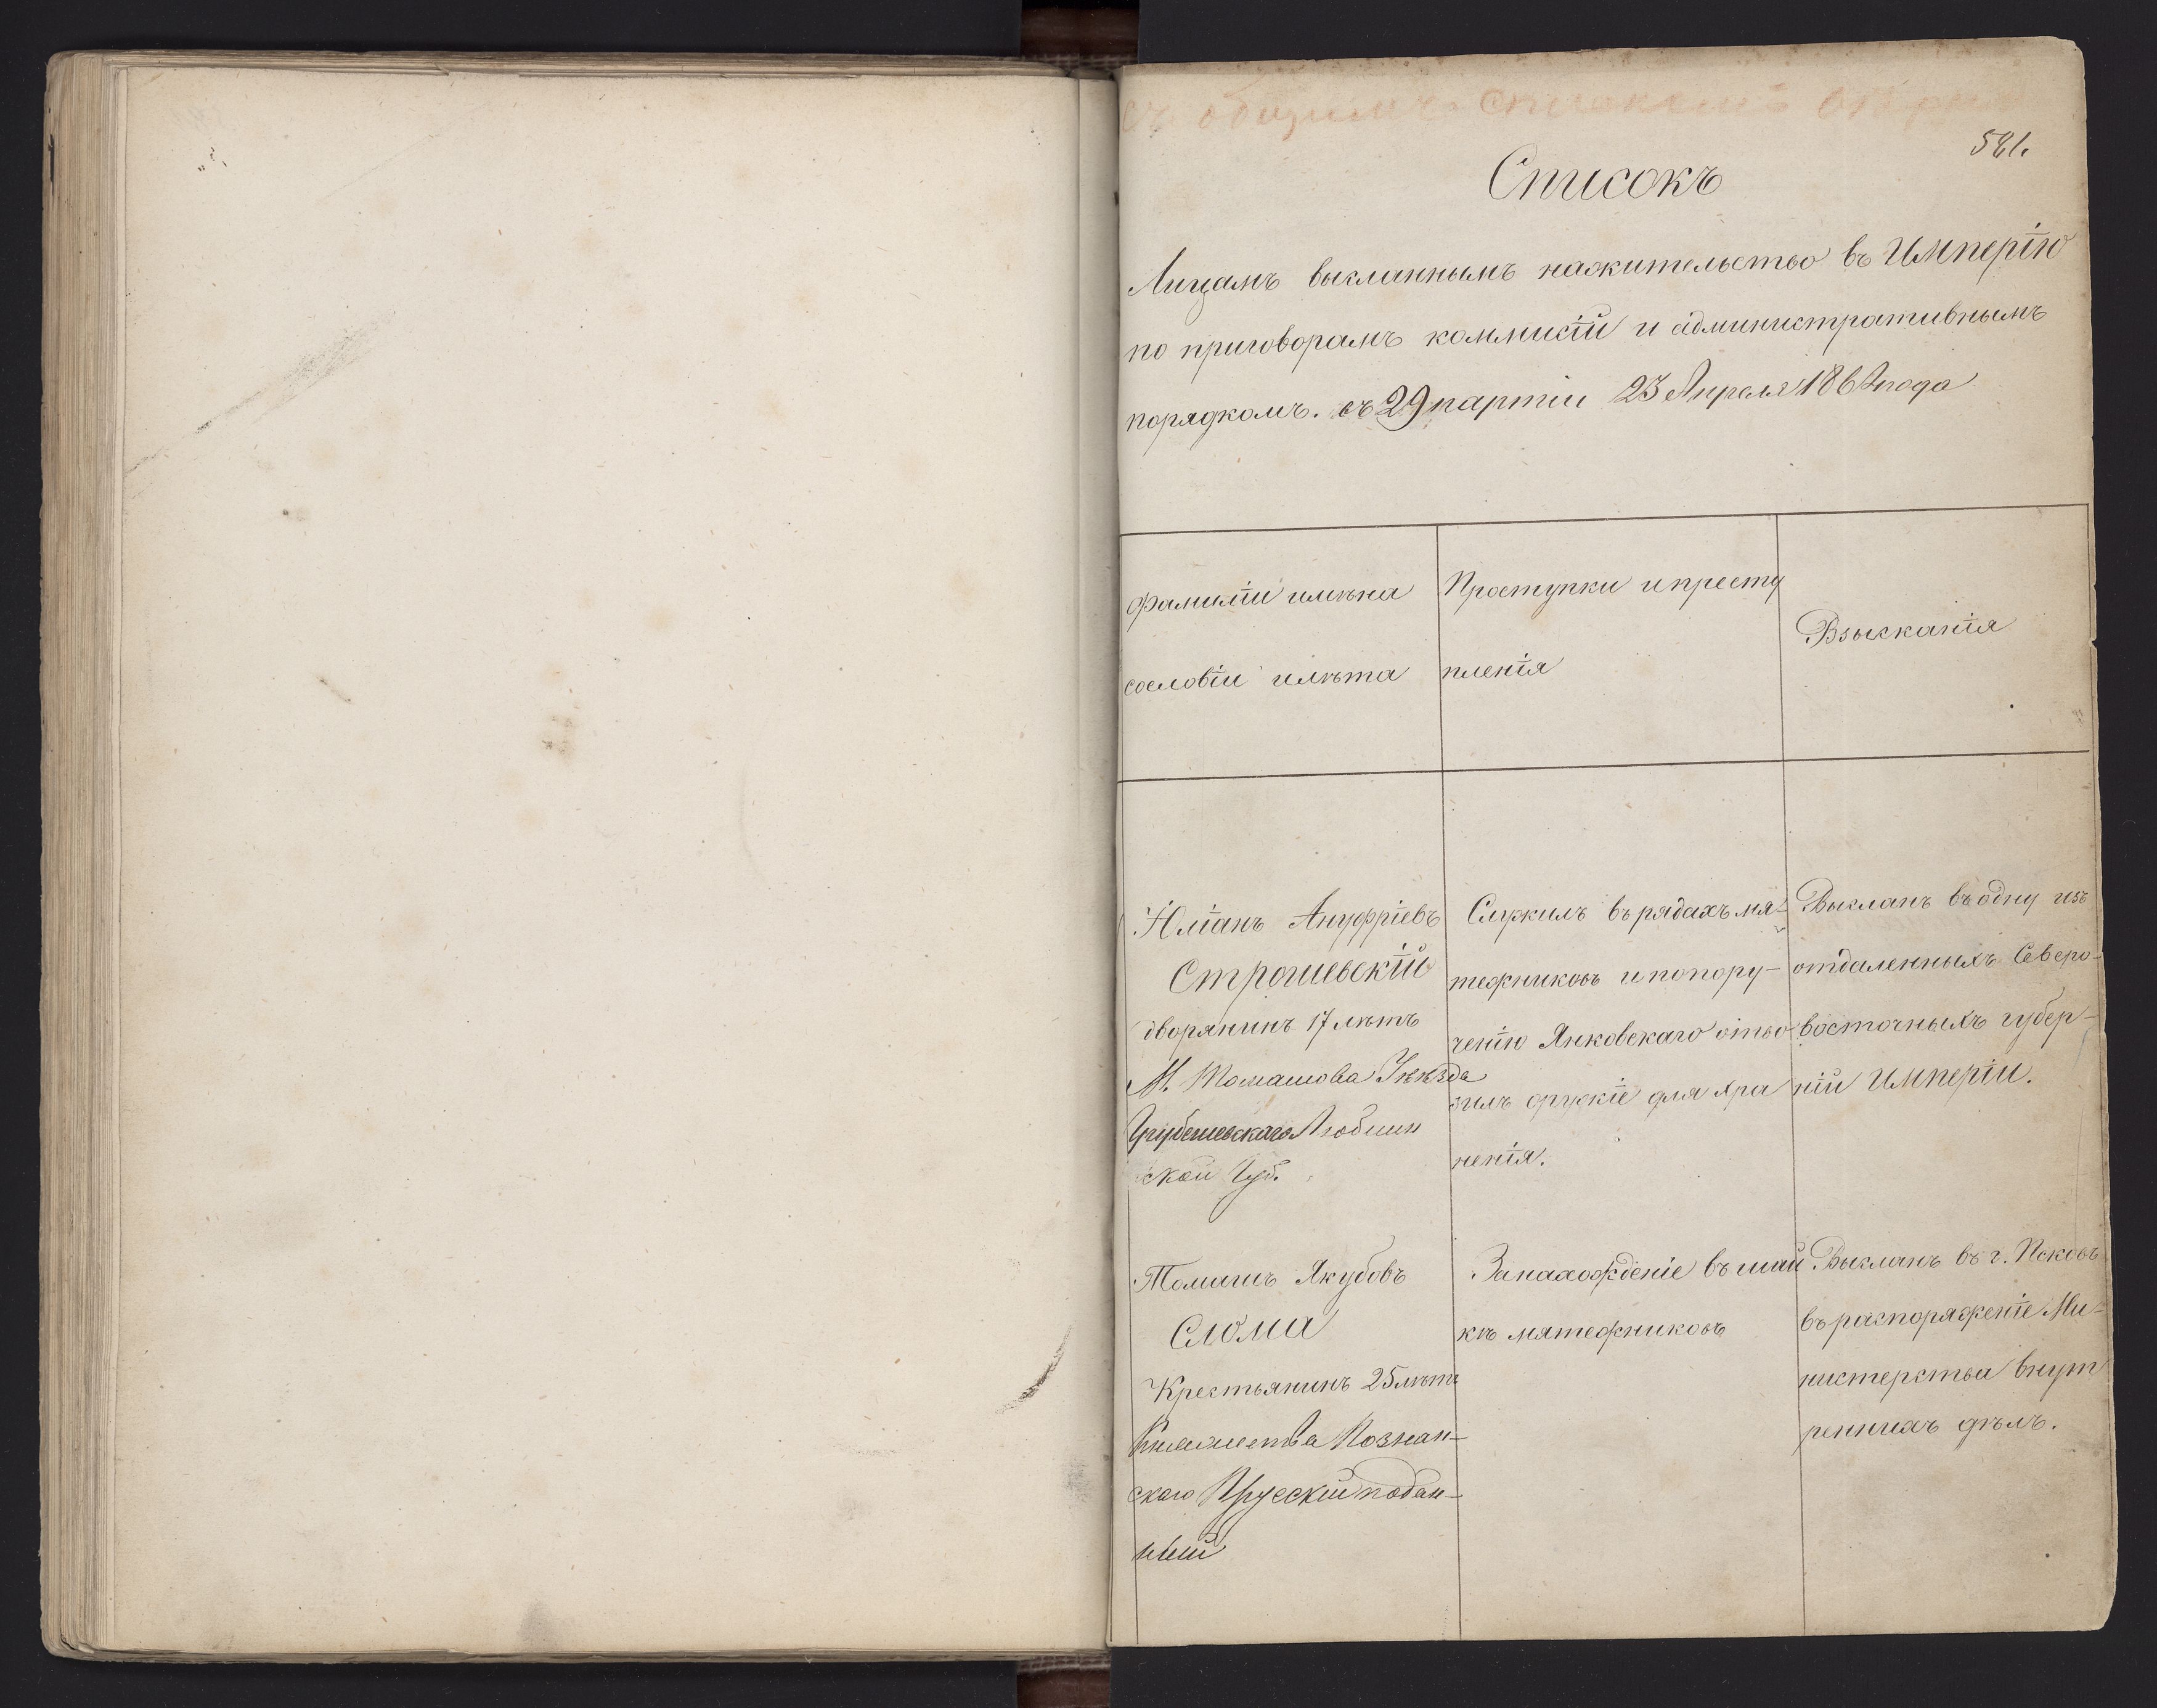 съ общимъ спискомъ
581.
Списокъ
Лицамъ высланнымъ нажительство въ Имперію
по приговорамъ коммисій и административнымъ
порядкомъ. съ 29 партіи 23 Апреля 1864 года
Фамиліи имѣна
сословіи илѣта
Проступки и престу
пленія
Взысканія
Юліанъ Ануфріевъ
Строшевскій
дворянинъ 17 лѣтъ
М. Томашова Уѣзда
Грубешевскаго Люблин
ской Губ.
Служилъ въ рядахъ мя-
тежниковъ и попору-
ченію Янковскаго отво
зилъ оружіе для хра
ненія.
Высланъ въ одну изъ
отдаленныхъ Северо-
восточныхъ губер-
ній Имперіи.
Томашъ Якубовъ
Слома
Крестьянинъ 25 лѣтъ
Княжества Познан-
скаго Прусскій подан-
ный
За нахожденіе въ шай
кѣ мятежниковъ
Высланъ въ г. Псковъ
въ распоряженіе Ми-
нистерства внут
реннихъ дѣлъ.